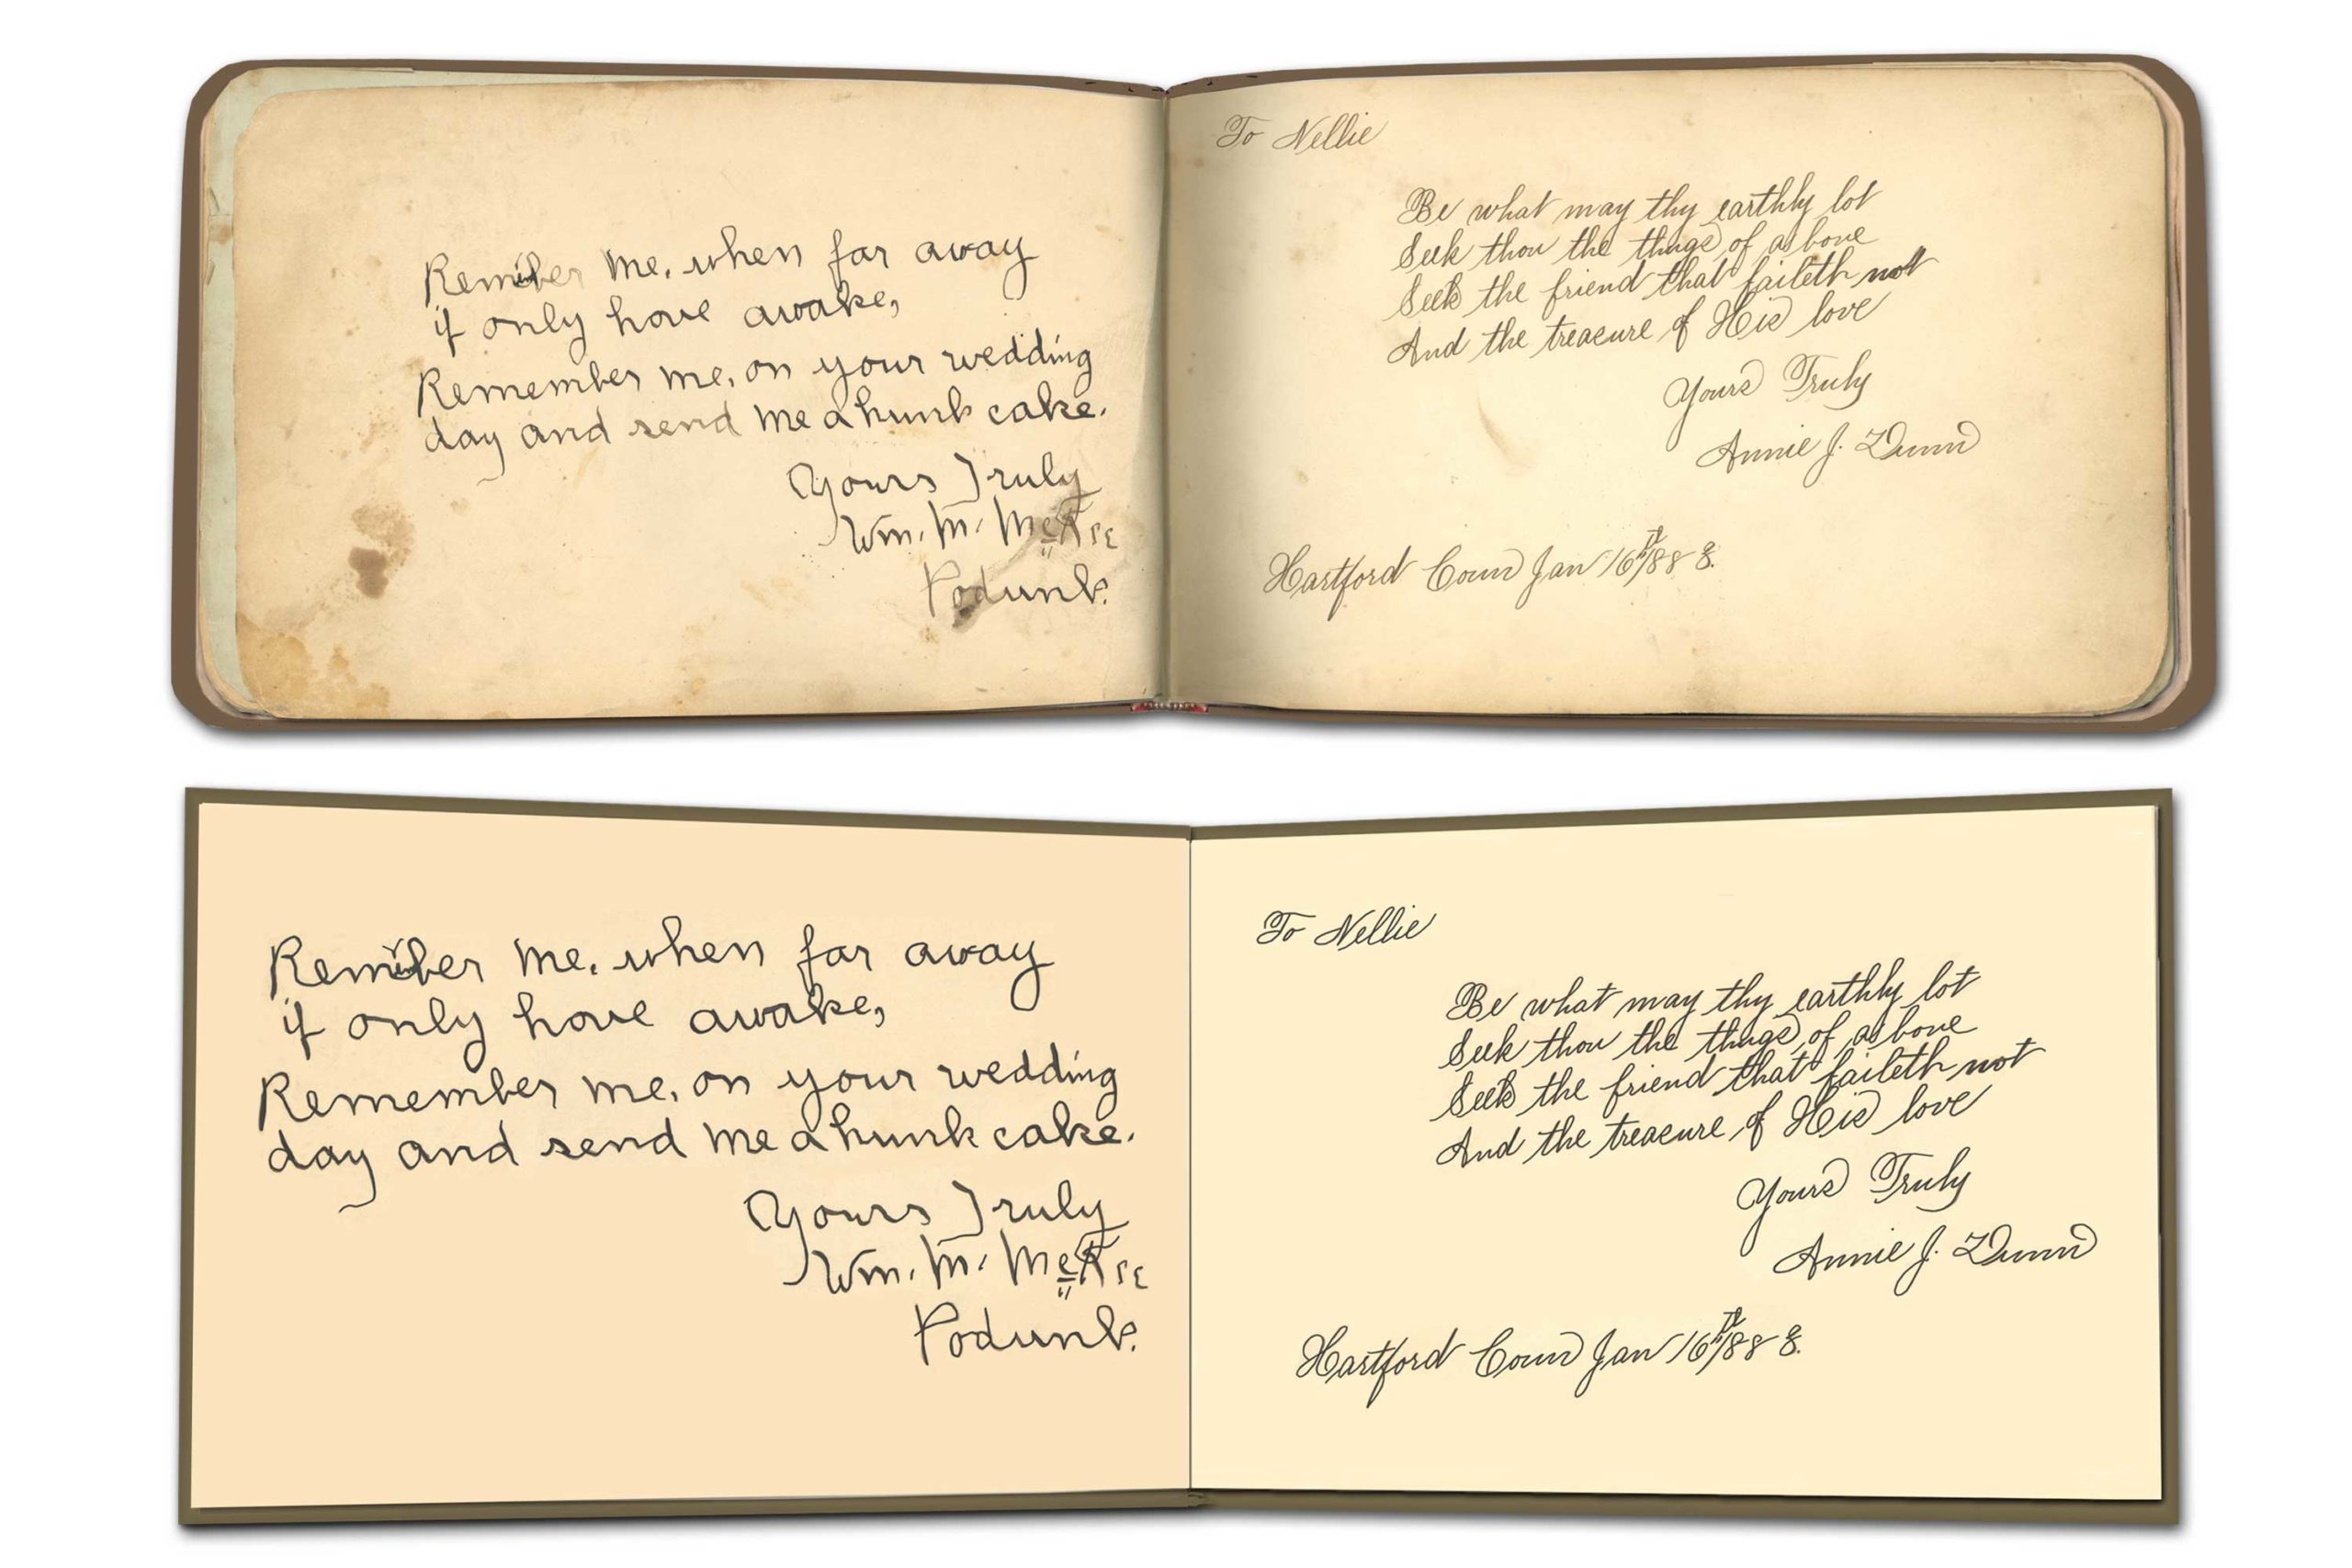 Remember me, when far away
if only have awake,
Remember me, on your wedding
day and send me a hunk cake.
Yours Truly
Wm. M. McKee
Podunk.
To Nellie
Be what may thy earthly lot
Seek thou the things of above
Seek the friend that faileth not
And the treasure of His love
Yours Truly
Annie J. Dunn
Hartford Conn Jan 16th 1888.
Remember me, when far away
if only have awake,
Remember me, on your wedding
day and send me a hunk cake.
Yours Truly
Wm. M. McKee
Podunk.
To Nellie
Be what may thy earthly lot
Seek thou the things of above
Seek the friend that faileth not
And the treasure of His love
Yours Truly
Annie J. Dunn
Hartford Conn Jan 16th 1888.